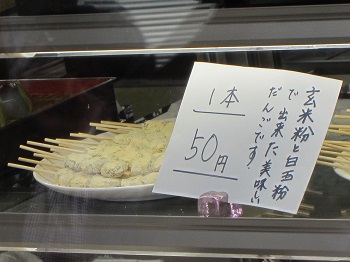 玄米粉と白玉粉
で出来た美味しい
だんごです!
1本
50円